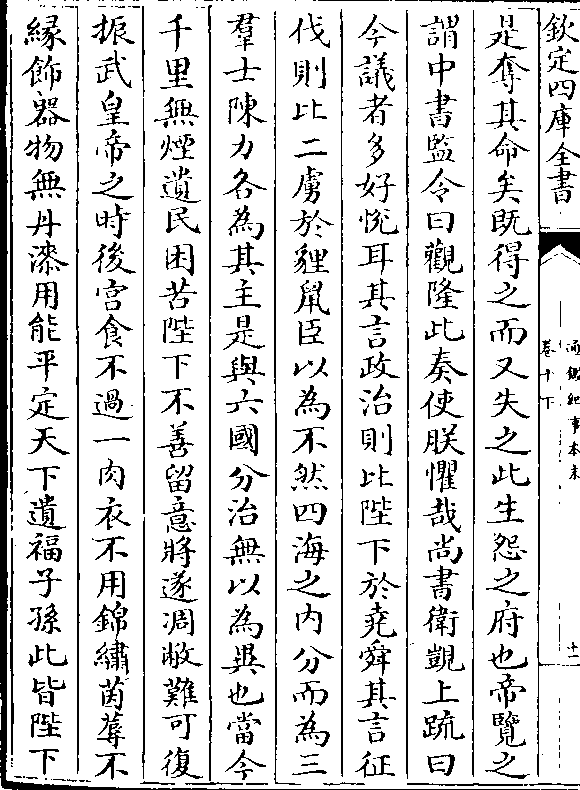 欽定四庫全書
通鑑紀事本末
卷十下
十一
是奪其命矣既得之而又失之此生怨之府也帝覽之
謂中書監令曰觀隆此奏使朕懼哉尚書衛覬上疏曰
今議者多好悅耳其言政治則比陛下於堯舜其言征
伐則比二虜於貍鼠臣以為不然四海之内分而為三
羣士陳力各為其主是與六國分治無以為異也當今
千里無煙遺民困苦陛下不善留意將遂凋敝難可復
振武皇帝之時後宫食不過一肉衣不用錦繡茵蓐不
緣飾器物無丹漆用能平定天下遺福子孫此皆陛下